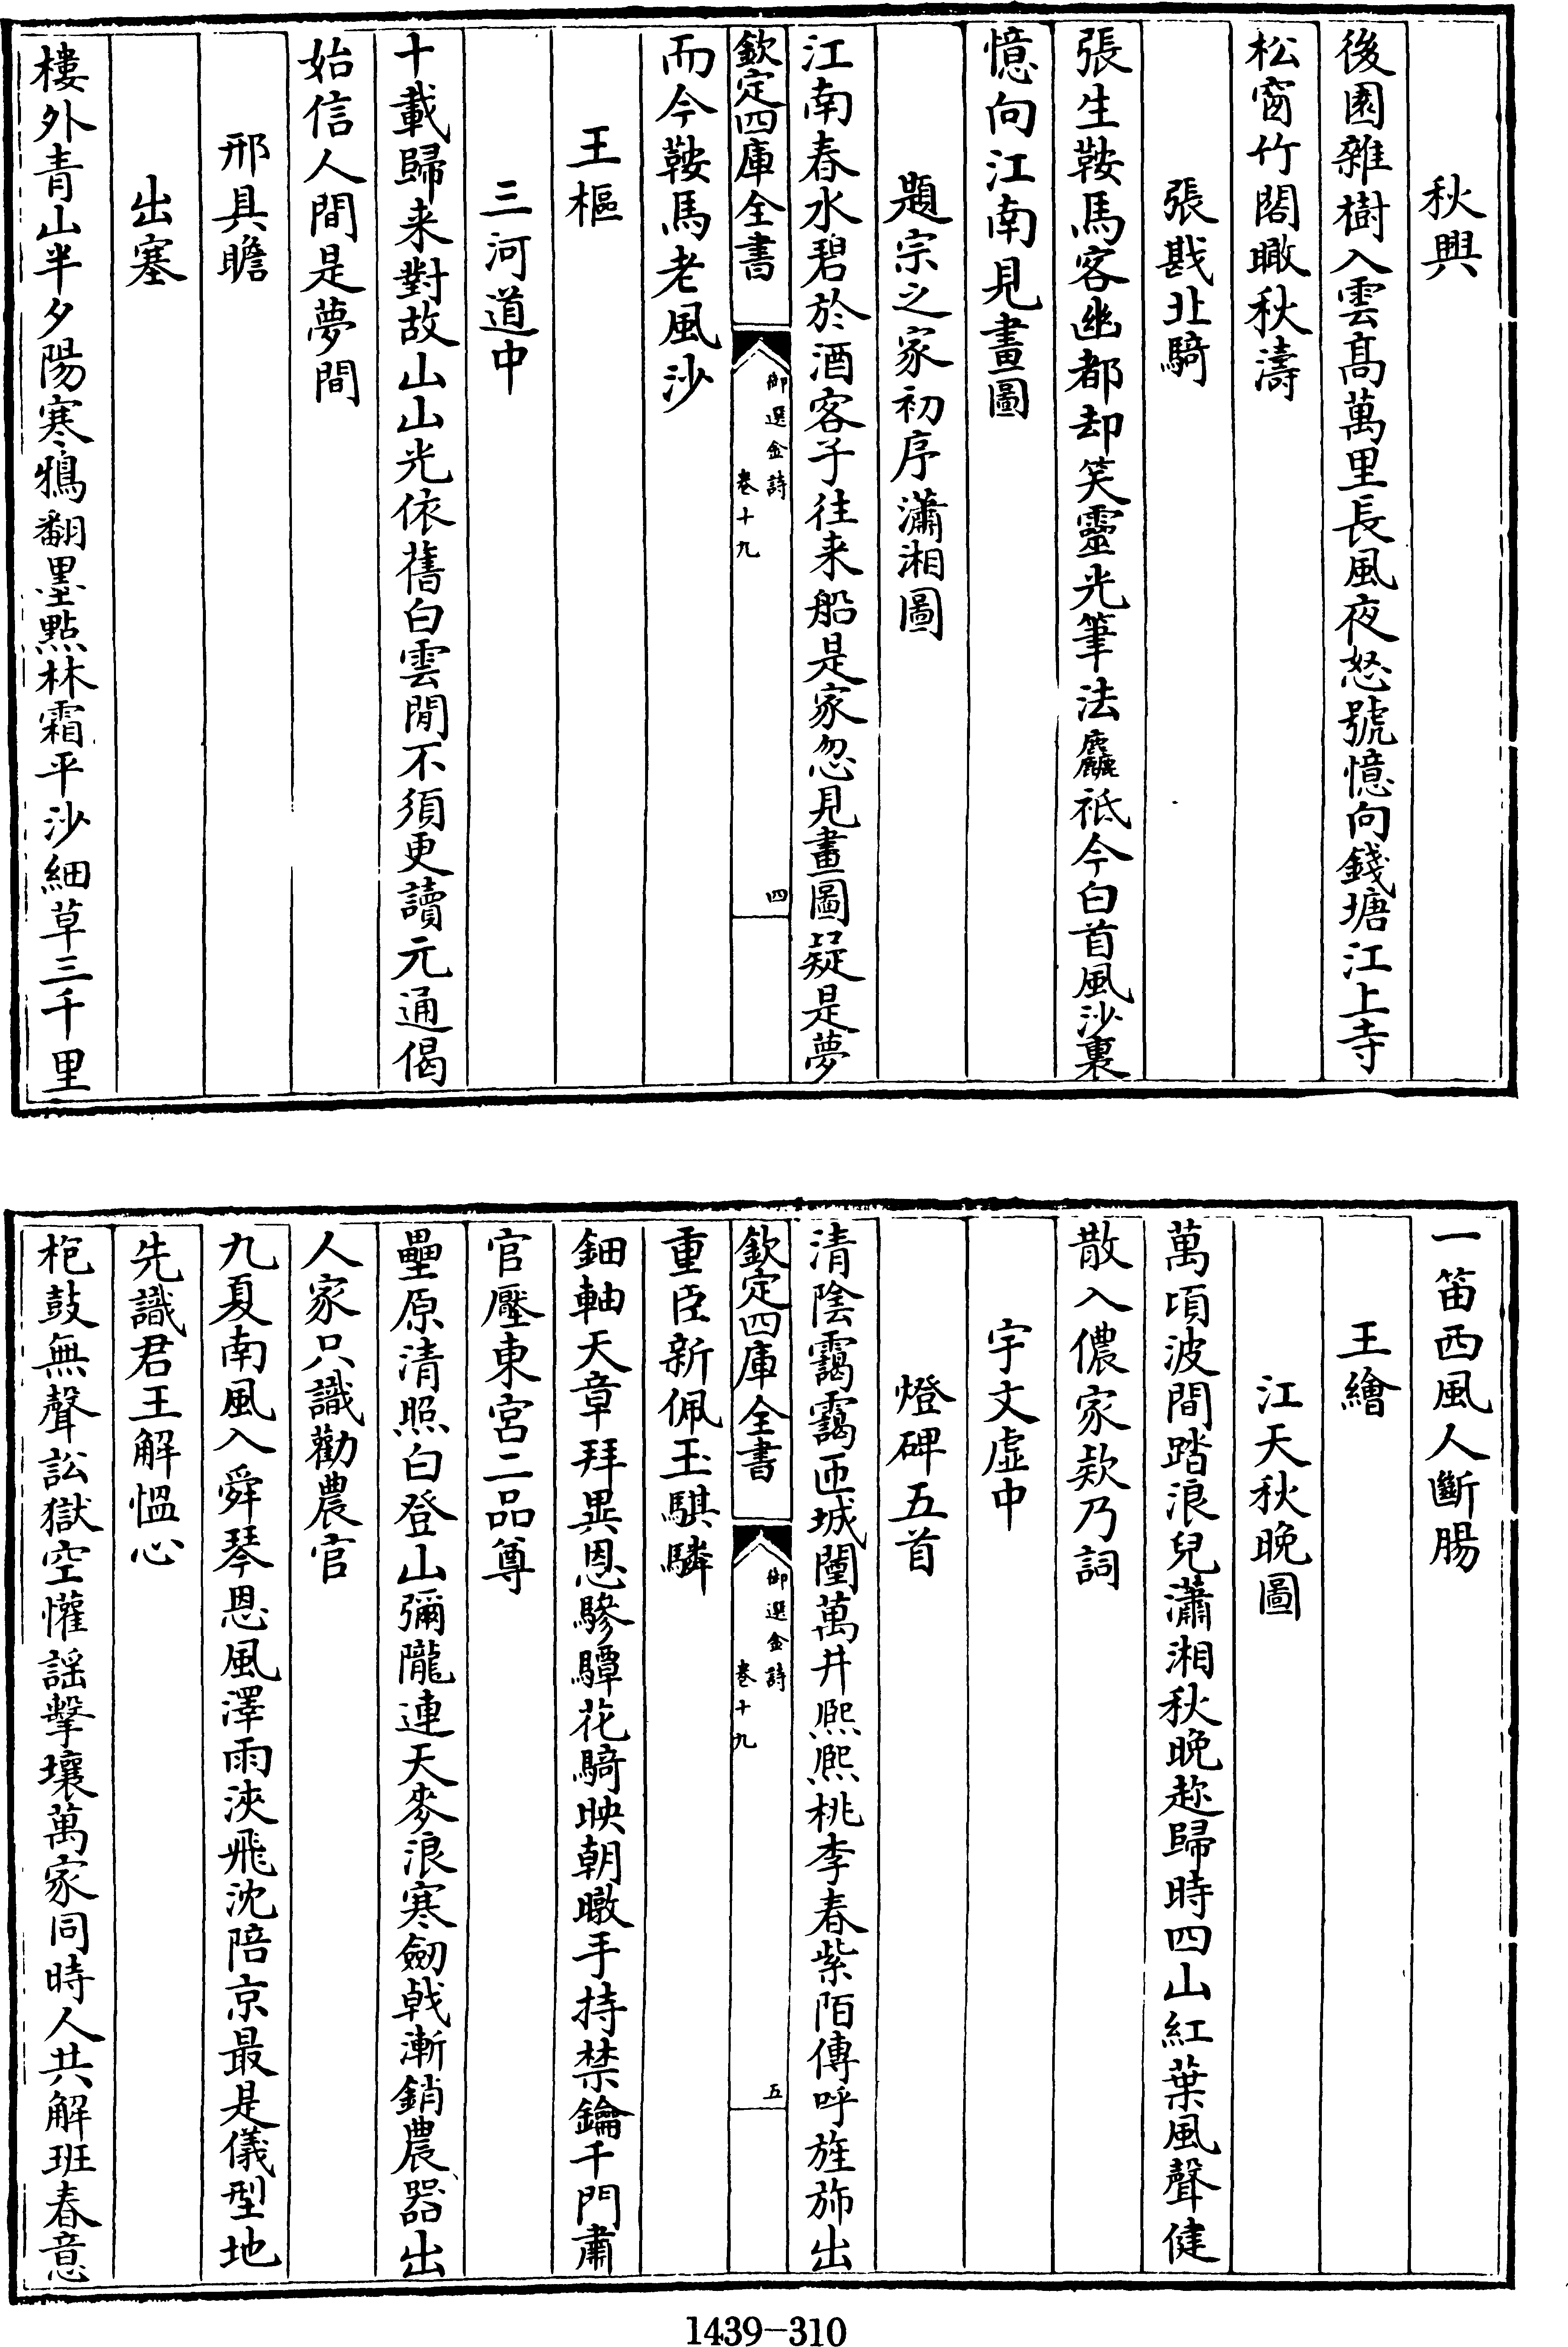 秋興
後園雜樹入雲髙萬里長風夜怒號憶向錢塘江上寺
松窗竹閣瞰秋濤
張戡北騎
張生鞍馬客幽都却笑靈光筆法麤祗今白首風沙裏
憶向江南見畫圖
題宗之家初序瀟湘圖
江南春水碧於酒客子往来船是家忽見畫圖疑是夢
欽定四庫全書
御選金詩
卷十九
四
而今鞍馬老風沙
王樞
三河道中
十載歸来對故山山光依舊白雲閒不須更讀元通偈
始信人間是夢間
邢具瞻
出塞
樓外青山半夕陽寒鴉翻墨點林霜平沙細草三千里
一笛西風人斷腸
王繪
江天秋晚圖
萬頃波間踏浪兒瀟湘秋晚趂歸時四山紅葉風聲健
散入儂家欵乃詞
宇文虛中
燈碑五首
清陰靄靄匝城闉萬井熈熈桃李春紫陌傳呼旌斾出
欽定四庫全書
御選金詩
卷十九
五
重臣新佩玉騏驎
鈿軸天章拜異恩驂驔花騎映朝暾手持禁鑰千門肅
官壓東宮二品尊
壘原清照白登山彌隴連天麥浪寒劒戟漸銷農器出
人家只識勸農官
九夏南風入舜琴恩風澤雨浹飛沈陪京最是儀型地
先識君王解慍心
枹鼓無聲訟獄空懽謡擊壤萬家同時人共解班春意
1439-310